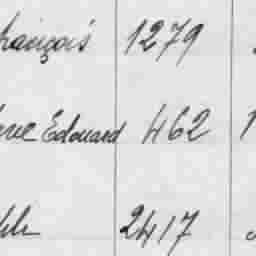 François 1279
Edouard 462
2417